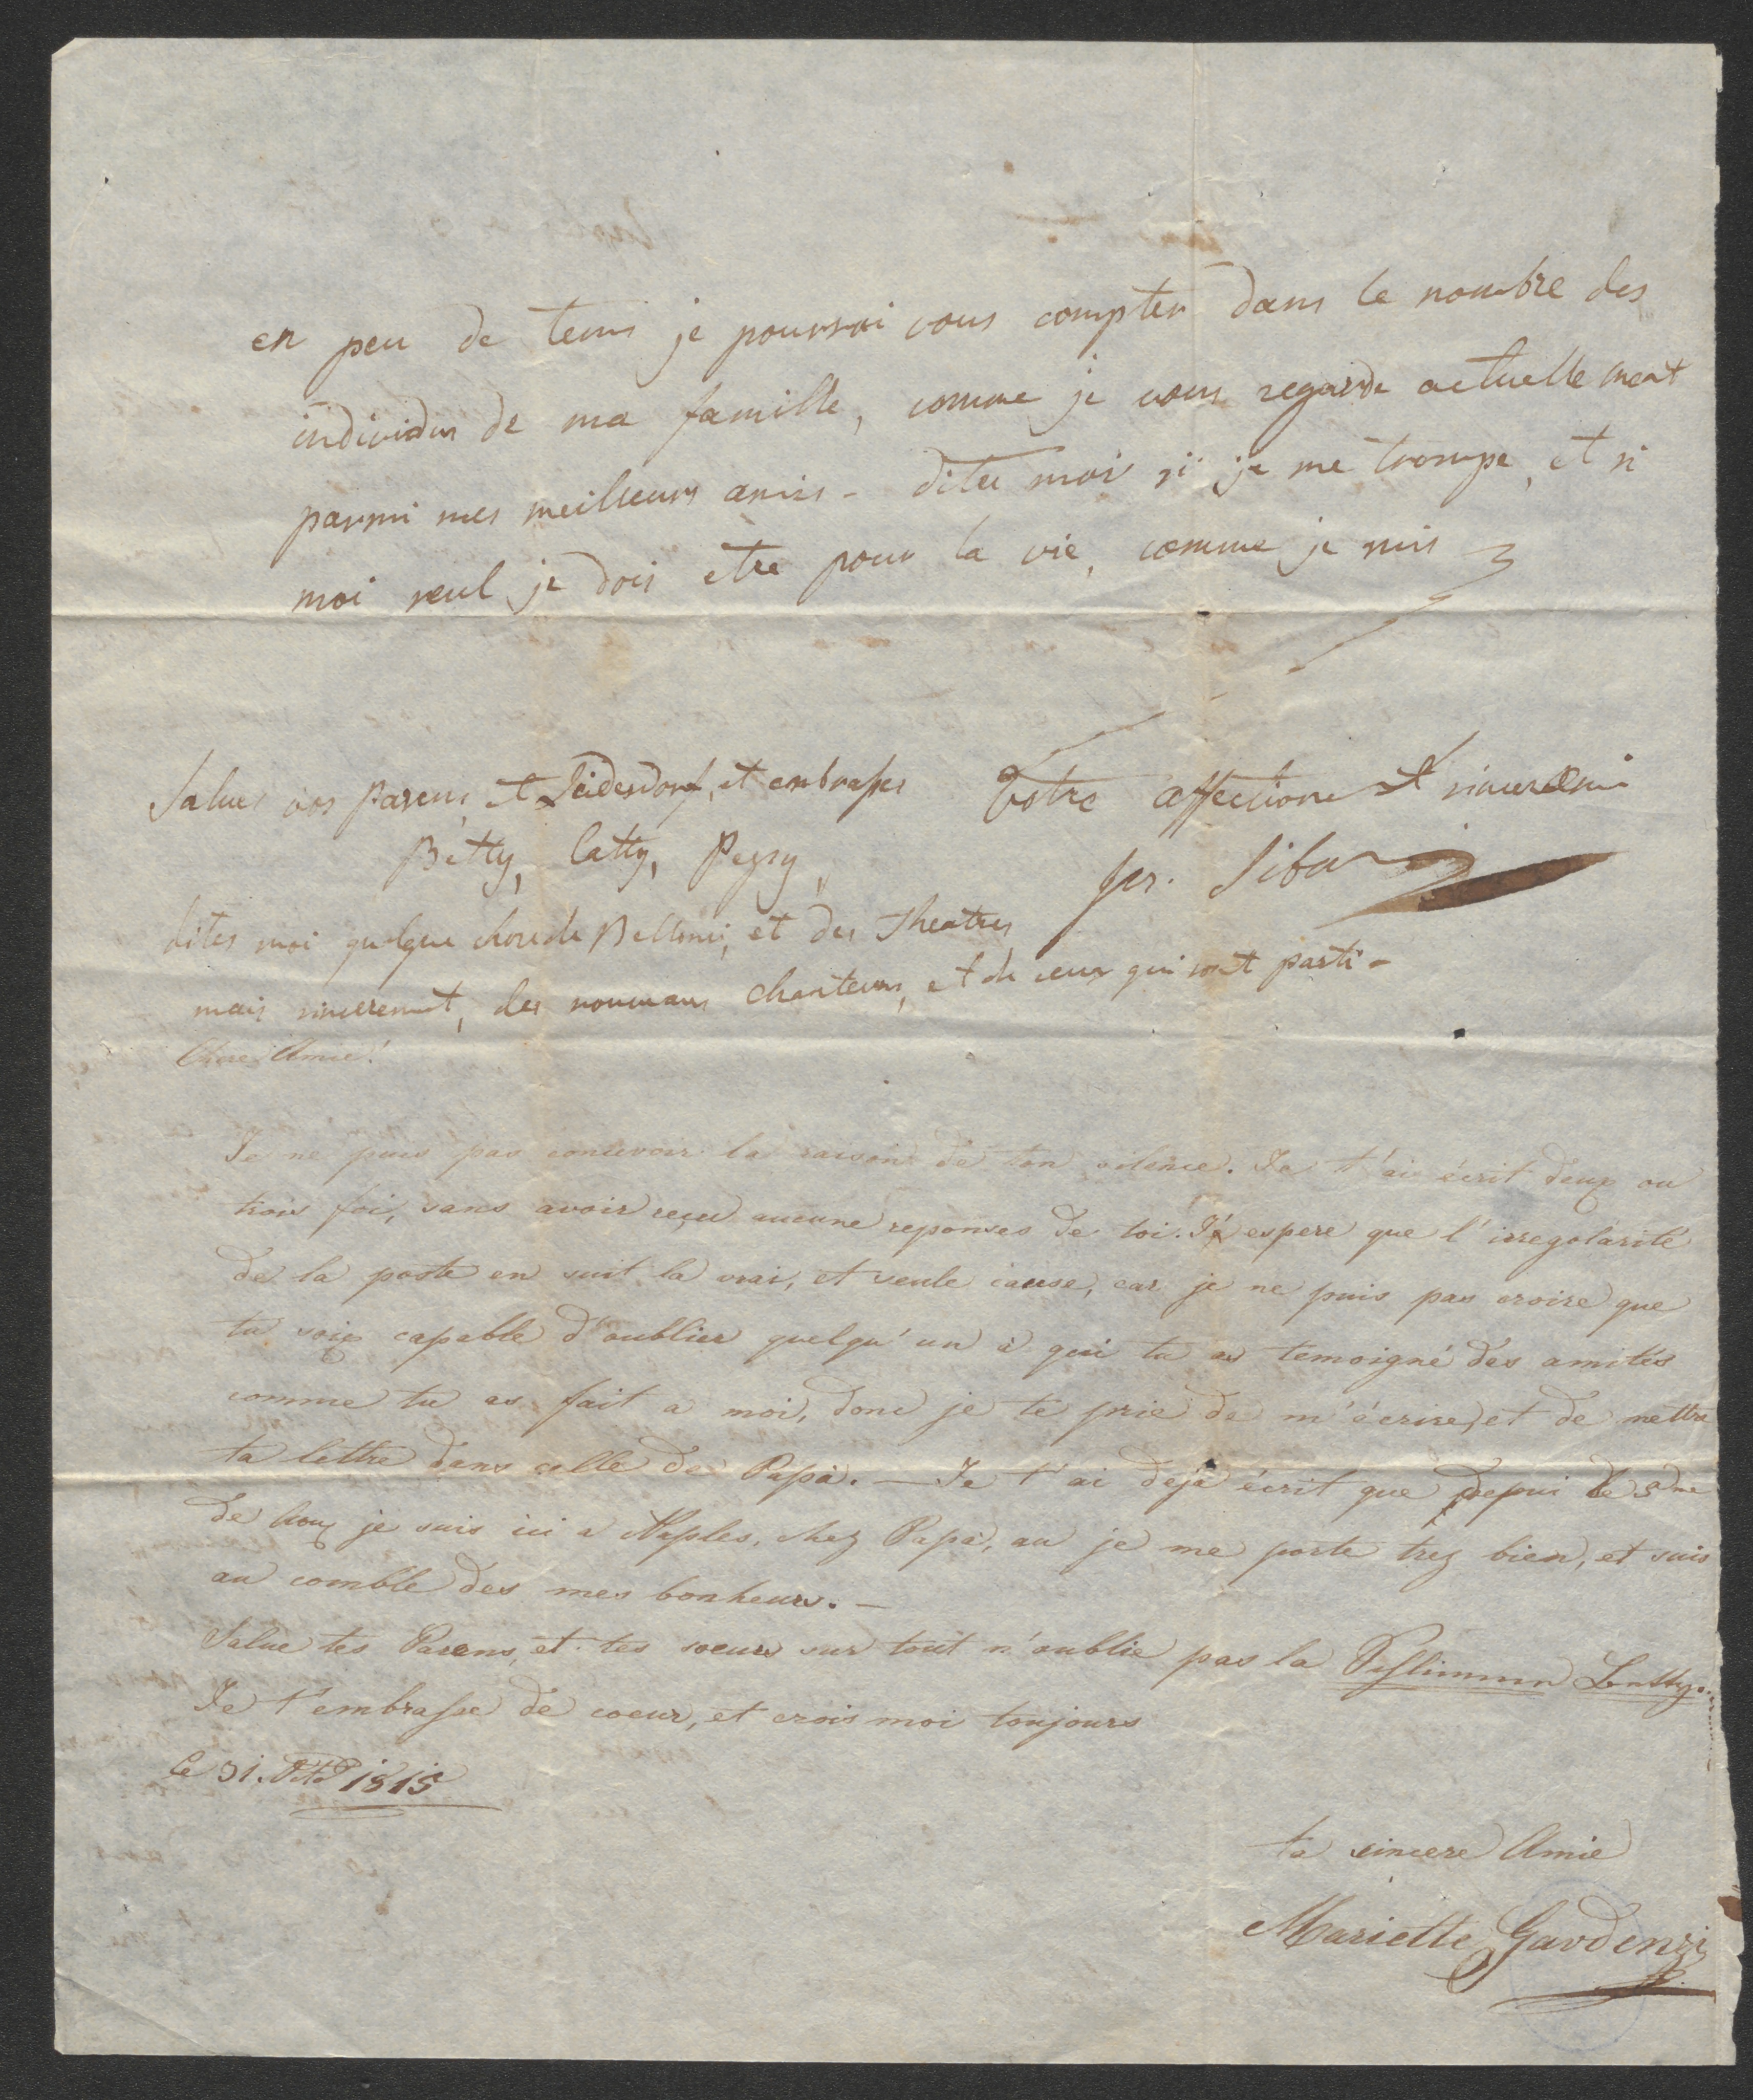 en peu de tems je pourrai vous compter dans le nombre des
individus de ma famille, comme je vous regarde actuellement
parmi mes meilleurs amis - dites moi si je me trompe, et si
moi seul je dois etre pour la vie, comme je suis
Votre affectioné et sincer Ami
Jos. Sibon
Salues vos Parens, et Leidesdorf, et embrasses
Betty, Catty, Pegsy,
dites moi quelque chose de et des Theatres
mais sincerement, des nouveaux chanteurs, et de ceux qui sont parti -
Chere Amie!
Je ne puis pas concevoir la raison de ton silence. Je t'ai écrit deux ou
trois foi, sans avoir reçu aucune reponses de toi. J'espere que l'irregolarité
de la poste en suit la vrai, et seule cause, car je ne puis pas croire que
tu soix capable d'oublier quelqu'un à qui tu as temoigné des amités
comme tu as fait a moi, donc je te prie de m'écrire, et de mettre
ta lettre dans celle de Papà. — Je t'ai dejà écrit que depui le 5me
de je suis ici a Naples, chez Papà, au je me porte trez bien, et suis
au comble des mes bonheurs. —
Salue tes Parens, et tes soeurs sur tout n'oublie pas la
Je t'embrasse de coeur, et crois moi toujours
le 31. 1815
ta sincere Amie
Mariette Gaudenzi